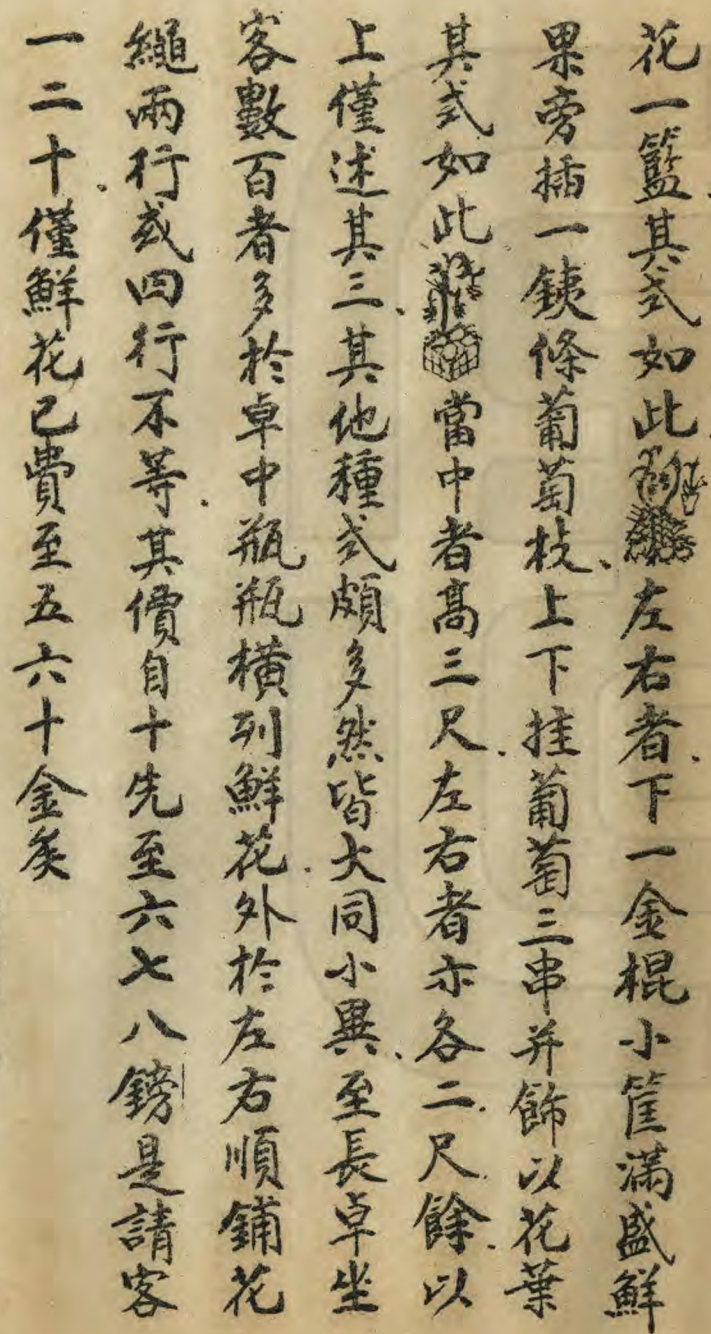 花一籃其式如此左右者下一金棍小筐滿盛鮮
果旁插一鉄條葡萄枝上下挂葡萄三串并飾以花葉
其式如此當中者高三尺左右者亦各二尺餘以
上僅述其三其他種式頗多然皆大同小異至長卓坐
客數百者多於卓中瓶瓶橫列鮮花外於左右順鋪花
繩兩行或四行不等其價自十先至六七八鎊是請客
一二十僅鮮花已費至五六十金矣